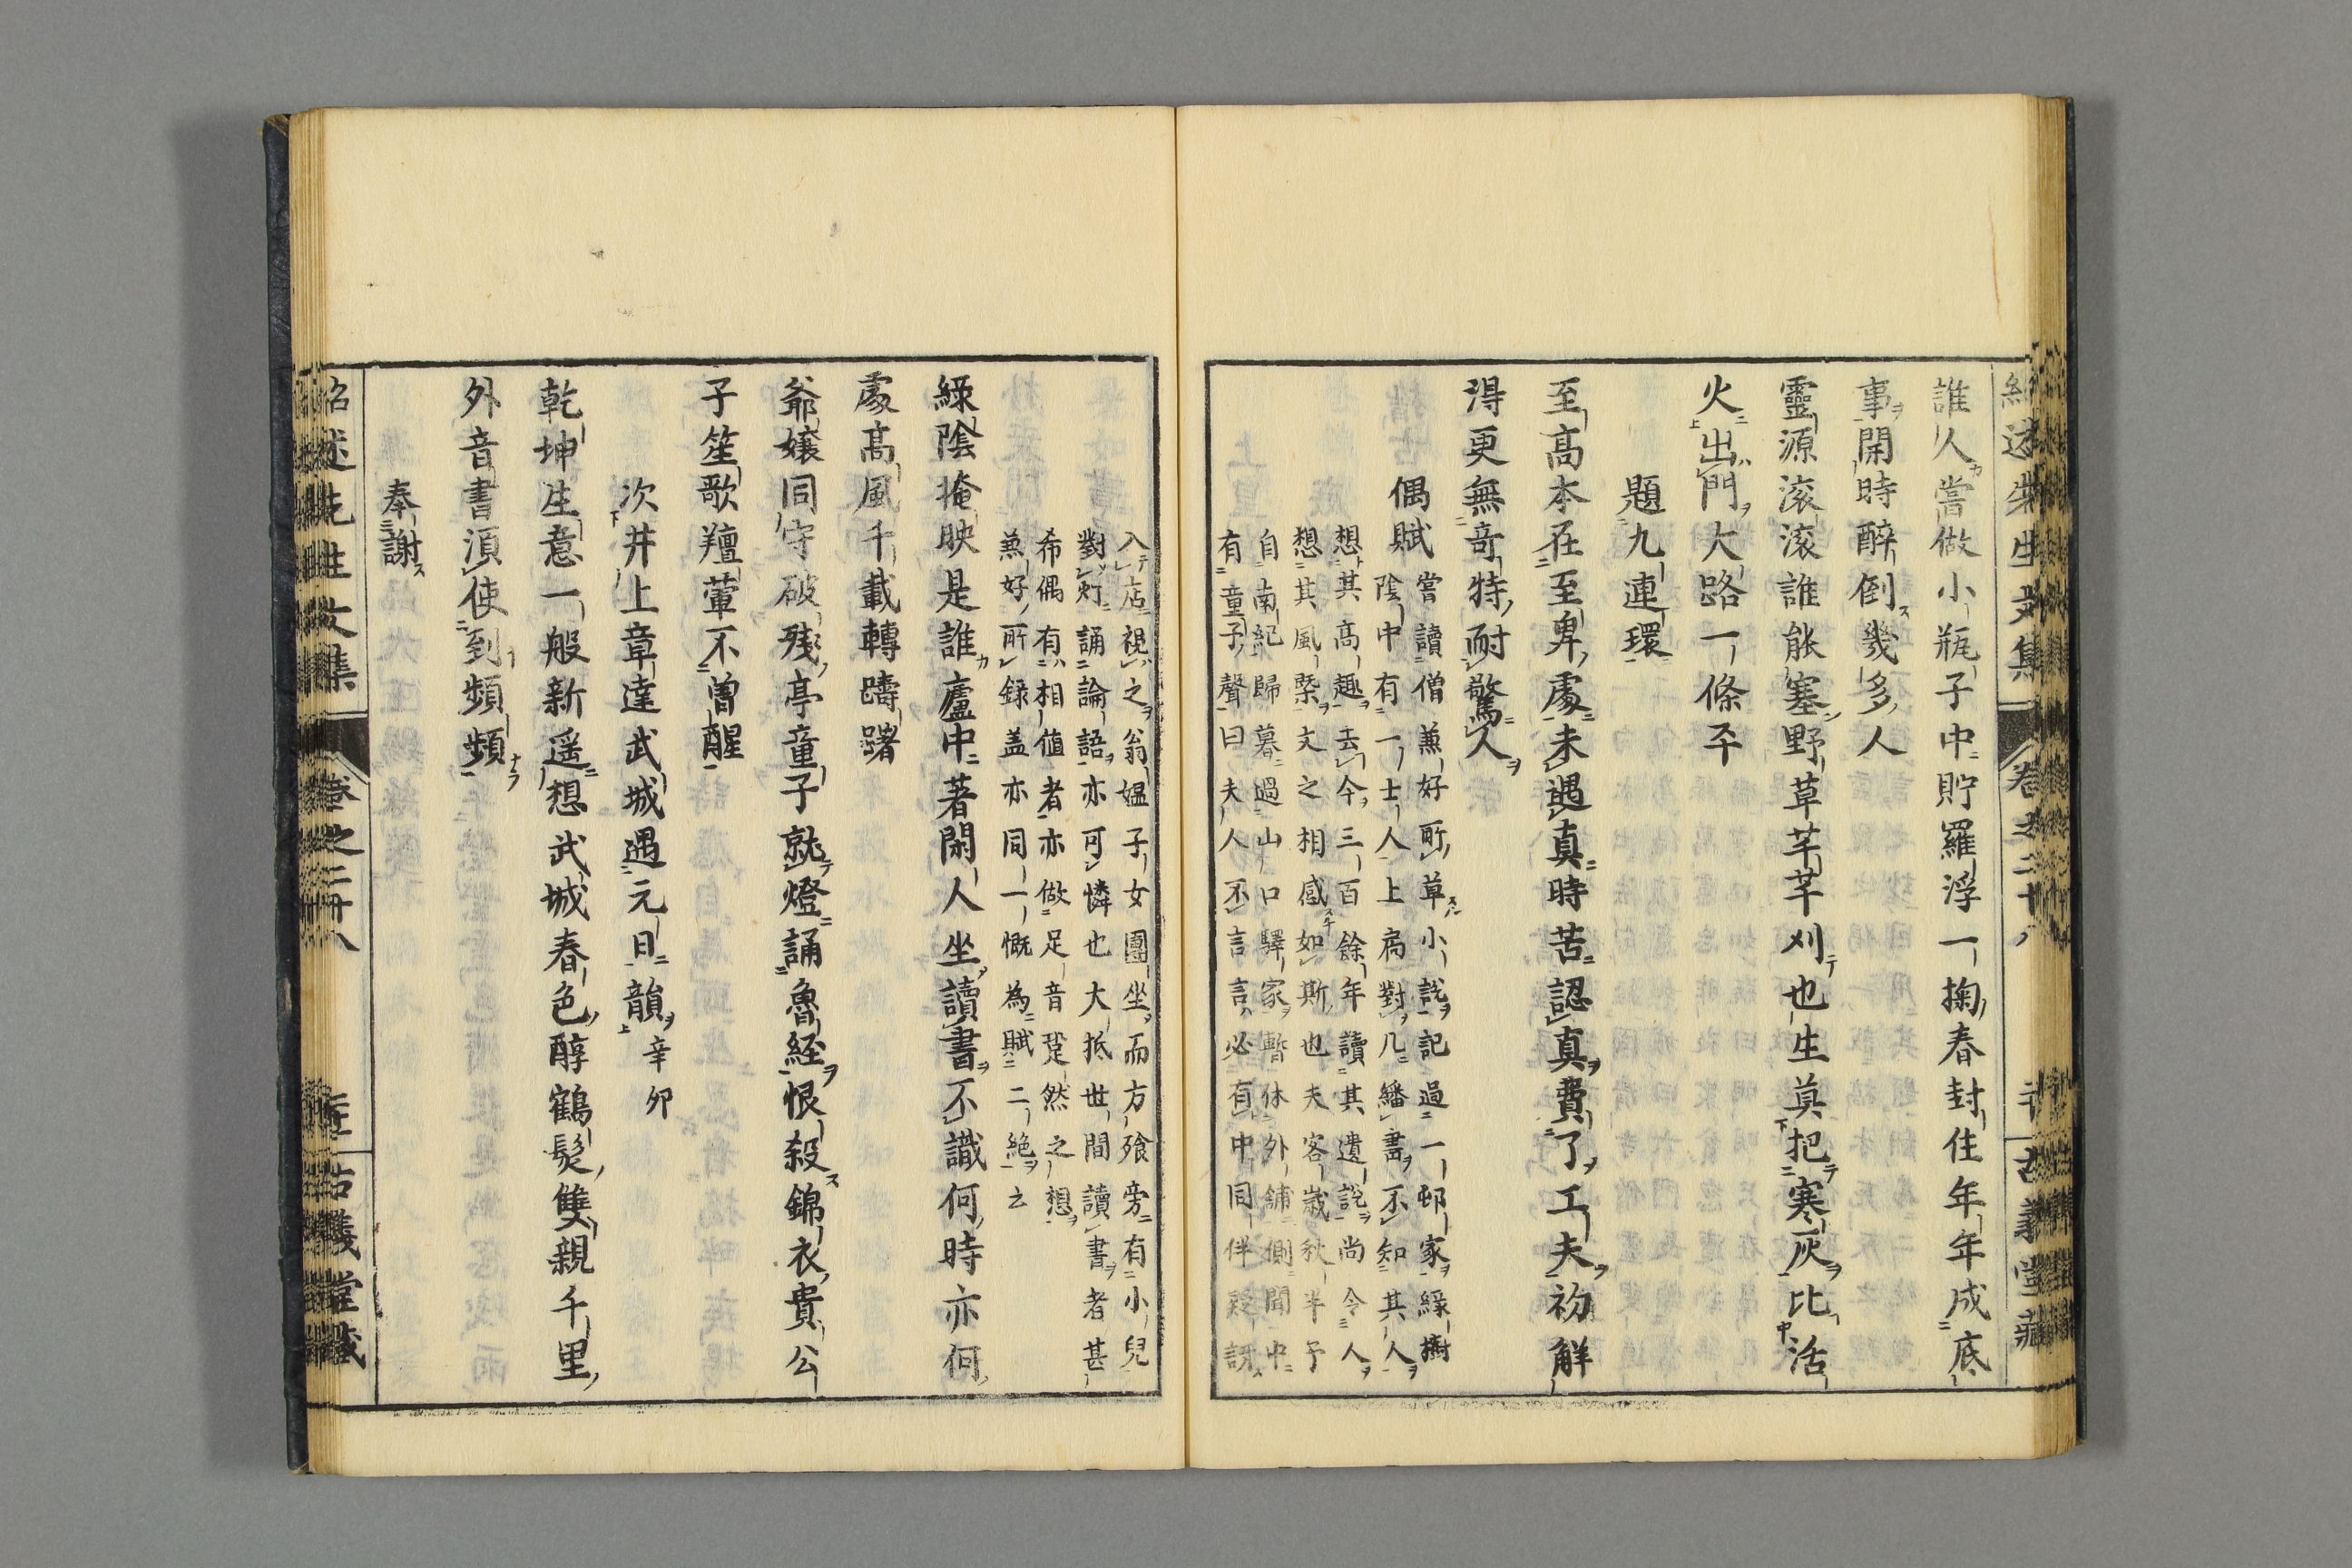 誰人嘗做小瓶子中貯羅浮一掬春封住年年成底
事閑時醉倒幾多人
靈源滾滾誰能塞野草芊芊刈也生莫把寒灰比活
火出門大路一條平
題九連環
至高本在至卑處未遇真時苦認真費了工夫初解
得更無奇特耐驚人
偶賦
嘗讀僧兼好所草小説記過一邨家緑樹
陰中有一士人上扃對几繙書不知其人
想其高趣去今三百餘年讀其遺説尚令人
想其風槩文之相感如斯也夫客歳秋半予
自南紀歸暮過山口驛家暫休外舖側聞中
有童子聲曰夫人不言言必有中同伴疑訝
入店視之翁媼子女團坐而方飱旁有小兒
對灯誦論語亦可憐也大抵世間讀書者甚
希偶有相値者亦做足音跫然之想
兼好所録盖亦同一慨為賦二絶云
緑陰掩映是誰廬中著閑人坐讀書不識何時亦何
處高風千載轉躊躇
爺孃同守破殘亭童子就燈誦魯經恨殺錦衣貴公
子笙歌羶葷不曽醒
次井上章達武城遇元日韻辛卯
乾坤生意一般新遥想武城春色醇鶴髪雙親千里
外音書須使到頻頻
奉謝
紹述先生文集
卷之二十八
古義堂藏
紹述先生文集
卷之二十八
古義堂藏